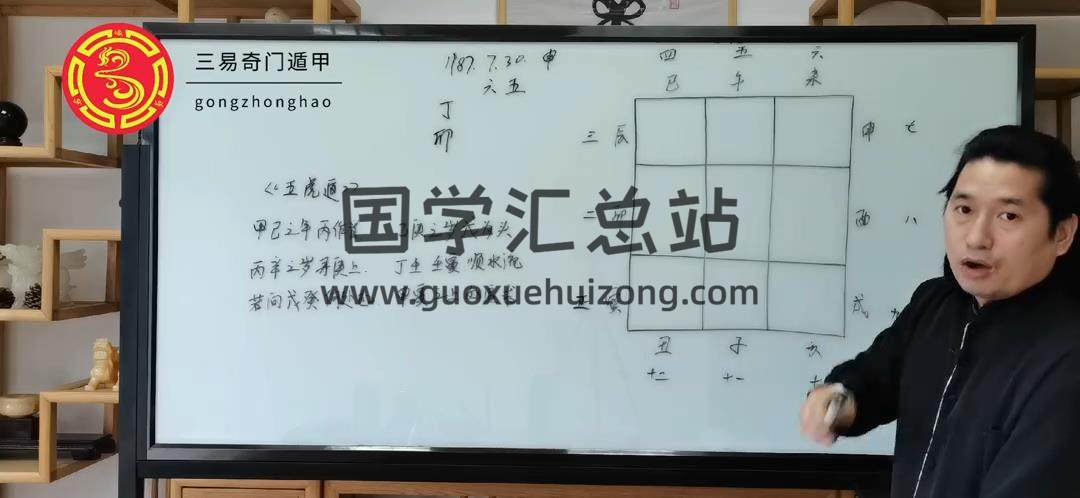 三易奇门遁甲
gongzhonghao
1987.7.30. 申
六 五
丁
卯
四 五 六
巳 午 未
三 辰
申 七
酉 八
寅
戌
丑 子 亥
十二 十一
《五虎遁》
甲己之年丙作
丙辛之岁寻庚上. 丁壬壬寅顺水流
若问戊癸
国学汇总站
www.guoxuehuizong.com